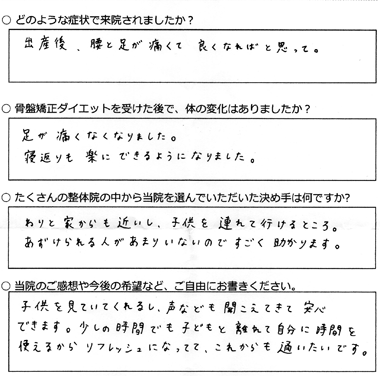 ○ どのような症状で来院されましたか？
出産後、腰と足が痛くて 良くなればと思って。
○ 骨盤矯正ダイエットを受けた後で、体の変化はありましたか？
足が 痛くなくなりました。
寝返りも 楽に できるようになりました。
○ たくさんの整体院の中から当院を選んでいただいた決め手は何ですか？
わりと 家からも 近いし、子供を 連れて行けるところ。
あずけられる人が あまりいないので すごく 助かります。
○ 当院のご感想や今後の希望など、ご自由にお書きください。
子供を見ていてくれるし、声なども 聞こえてきて 安心
できます。少しの時間でも 子どもと 離れて 自分に 時間を
使えるから リフレッシュになってて、これからも 通いたいです。